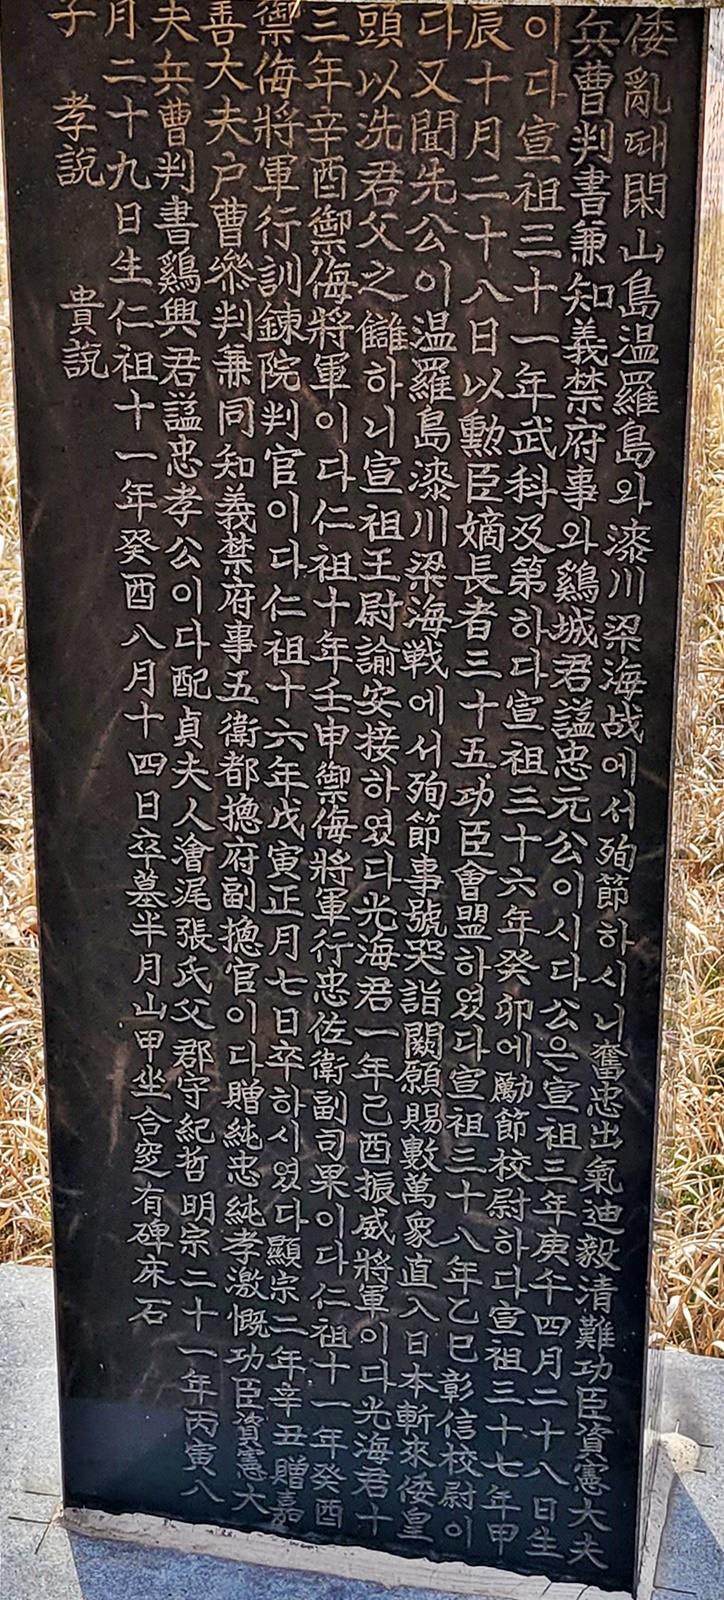 倭亂때閑山島温羅島와漆川梁海战에서殉節하시니奮忠出氣迪毅清難功臣資憲大夫
兵曹判書兼知義禁府事와鷄城君謚忠元公이시다公은宣祖三年庚午四月二十八日生
이다宣祖三十一年武科及第하다宣祖三十六年癸卯에勵節校尉하다宣祖三十七年甲
辰十月二十八日以勲臣嫡長者三十五功臣會盟하였다宣祖三十八年乙巳彰信校尉이
다又聞先公이温羅島漆川梁海戦에서殉節事號哭詣闕願賜數萬衆直入日本斬來倭皇
頭以洗君父之讎하니宣祖王尉諭安接하였다光海君一年己酉振威將軍이다光海君十
三年辛酉禦侮將軍이다仁祖十年壬申禦侮將軍行忠佐衛副司果이다仁祖十一年癸酉
禦侮將軍行訓鍊院判官이다仁祖十六年戊寅正月七日卒하시였다顯宗二年辛丑贈嘉
善大夫户曹叅判兼同知義禁府事五衛都摠府副摠官이다贈純忠純孝激慨功臣資憲大
夫兵曹判書鷄興君謚忠孝公이다配貞夫人澮浘張氏父郡守紀哲明宗二十一年丙寅八
月二十九日生仁祖十一年癸酉八月十四日卒墓半月山甲坐合窆有碑床石
子 孝說 貴說